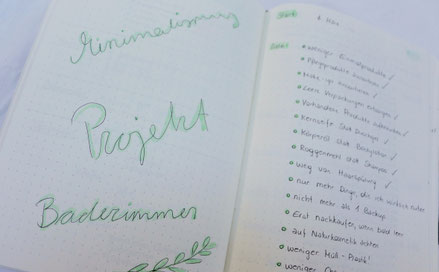 Minimalismus
Projekt
Badezimmer
Start:
1. März
Ziele:
weniger Einmalprodukte ✓
Pflegeprodukte ✓
Make-up ✓
Leere Verpackungen entsorgen ✓
Vorhandene Produkte aufbrauchen ✓
Kernseife statt Duschgel ✓
Körperöl statt Bodylotion ✓
Roggenmehl statt Shampoo ✓
weg von Haarspray ✓
nur mehr Dinge, die ich wirklich nutze
nicht mehr als 1 Backup
Erst nachkaufen, wenn bald leer
auf Naturkosmetik achten
weniger Müll - Plastik!
weniger